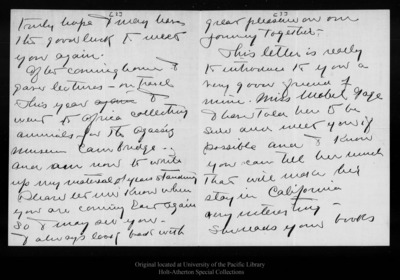 633
truly hope I may have
the good luck to meet
you again.
After coming home I
gave lectures - on travel
This year I
went to Africa collecting
animals for the Agassiz
museum Cambridge..
and am now to write
up my material of years standing
Please let me know when
you are coming East again
so I may see you -
I always look back with
633
great pleasure on our
journey together.
This letter is really
to introduce to you a
very good friend of
mine. Miss Mabel Gage
I have told her to be
sure and meet you if
possible and I know
you can tell her much
that will make her
stay in California
very interesting -
She reads your books
Original located at University of the Pacific Library
Holt-Atherton Special Collections